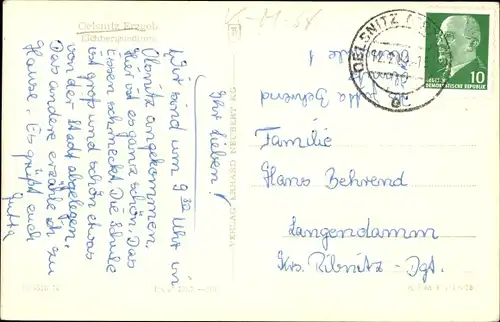 Oelsnitz Erzgeb.
Ihr Lieben!
Wir sind um 9³⁰ Uhr in
Ölsnitz angekommen.
Hier ist es ganz schön. Das
Essen schmeckt. Die Schule
ist groß und schön etwas
von der Stadt abgelegen.
Das andere erzähle ich zu
Hause. Es grüßt euch
Jutta
VERLAG ERHARD NEUBERT KG
OELSNITZ
DEMOKRATISCHE REPUBLIK
10
Jutta Behrend
Familie
Hans Behrend
Langendamm
Krs. Ribnitz-Dgt.